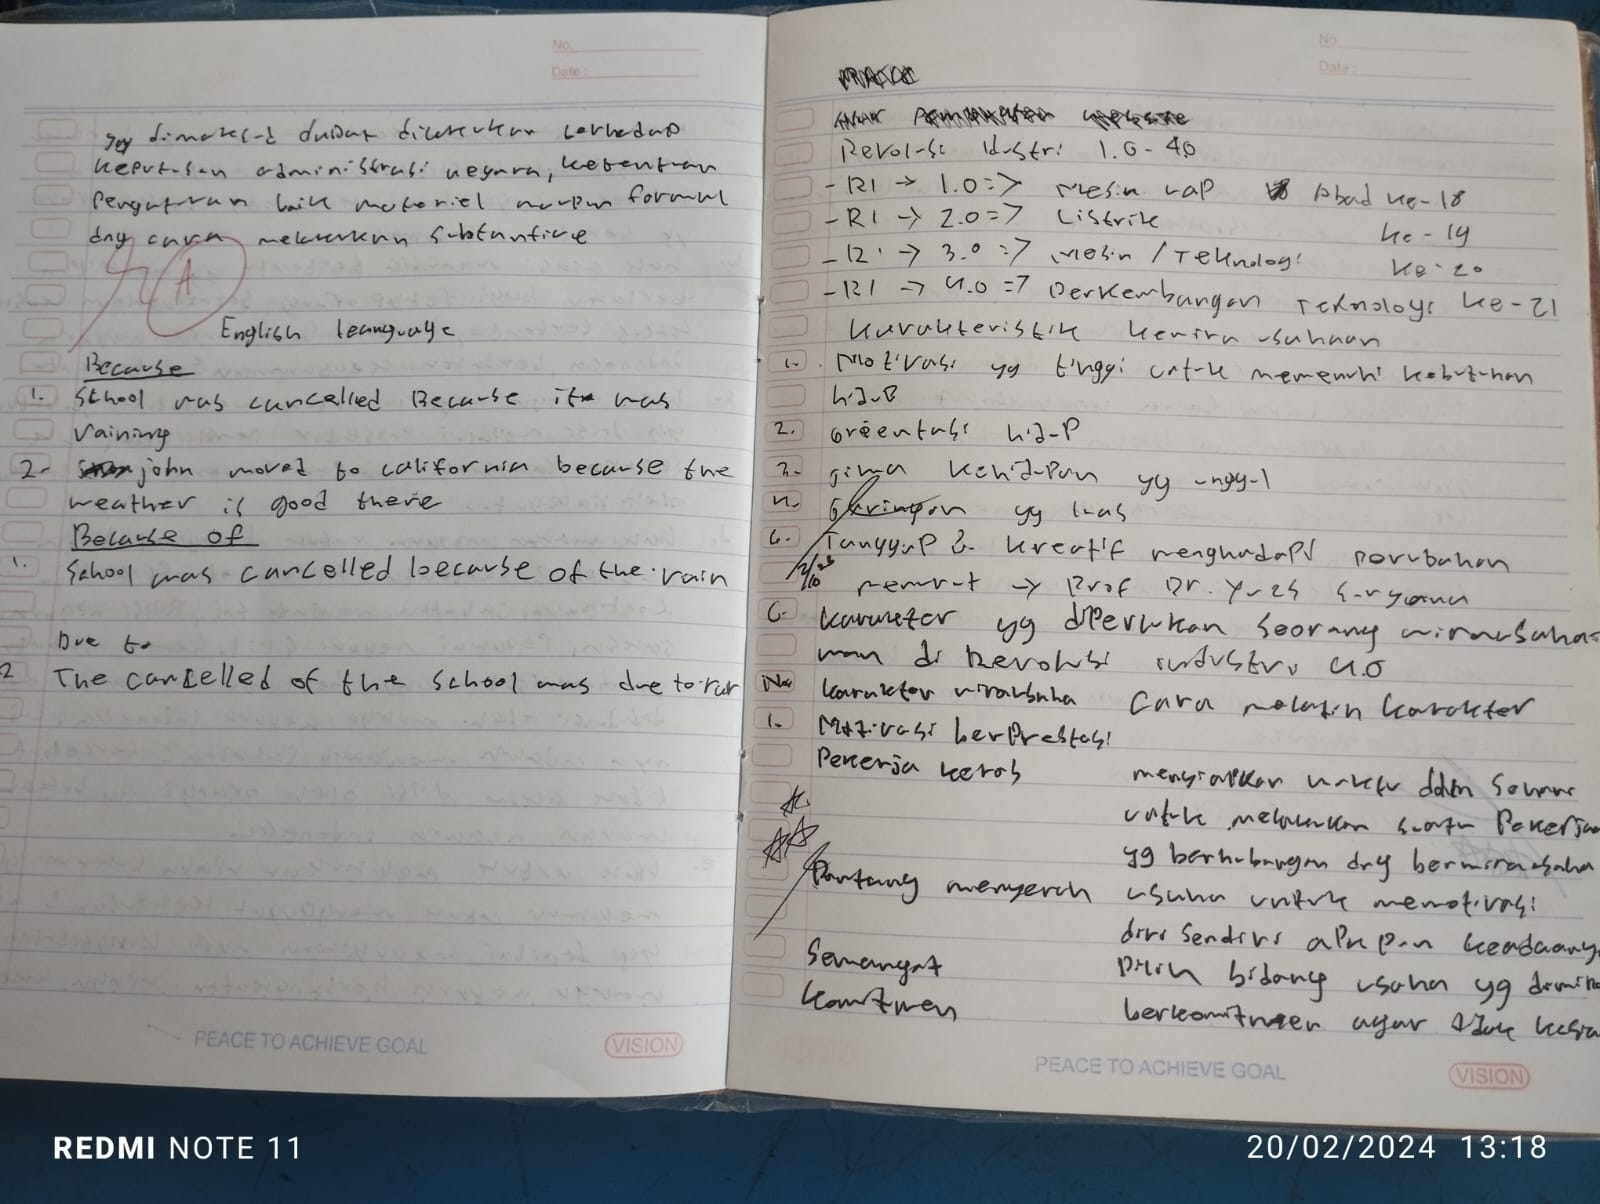 No.
Date :
yg dimaksud dapat dilakukan terhadap
keputusan administrasi negara, ketentuan
Pengaturan baik materiel maupun formal
dng cara melakukan substantive
A
English leanguage
Because
1. School was cancelled Because it was
raining
2. john moved to california because the
weather is good there
Because of
1. School was cancelled because of the rain
Due to
2 The cancelled of the school was due to
PEACE TO ACHIEVE GOAL
VISION
No.
Date :
Revolusi Idustri 1.0 - 4.0
- RI → 1.0 => Mesin uap Abad ke - 18
- RI → 2.0 => Listrik ke - 19
- RI → 3.0 => Mesin / Teknologi ke - 20
- RI → 4.0 => Perkembangan Teknologi ke - 21
Karakteristik kewirausahaan
1. Motivasi yg tinggi untuk memenuhi kebutuhan
hidup
2. Oreentasi hidup
3. kehidupan yg unggul
4. yg luas
6. Tanggap & kreatif menghadapi perubahan
menurut → Prof Dr. Suryana
C. karakter yg diperlukan seorang wirausaha
man di Revolusi industri 4.0
No karakter wirausaha Cara melatih karakter
1. Motivasi berprestasi
Pekerja keras menyiapkan waktu dalam
untuk melakukan suatu Pekerjaan
yg berhubungan dng berwirausaha
Pantang menyerah usaha untuk memotivasi
diri sendiri apapun keadaany
Semangat Pilih bidang usaha yg
Komitmen berkomitmen agar tidak
PEACE TO ACHIEVE GOAL
VISION
REDMI NOTE 11
20/02/2024 13:18